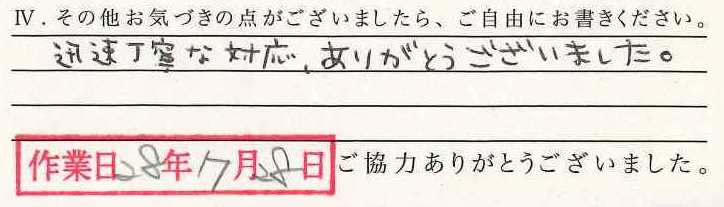 Ⅳ．その他お気づきの点がございましたら、ご自由にお書きください。
迅速丁寧な対応、ありがとうございました。
作業日28年17月28日 ご協力ありがとうございました。